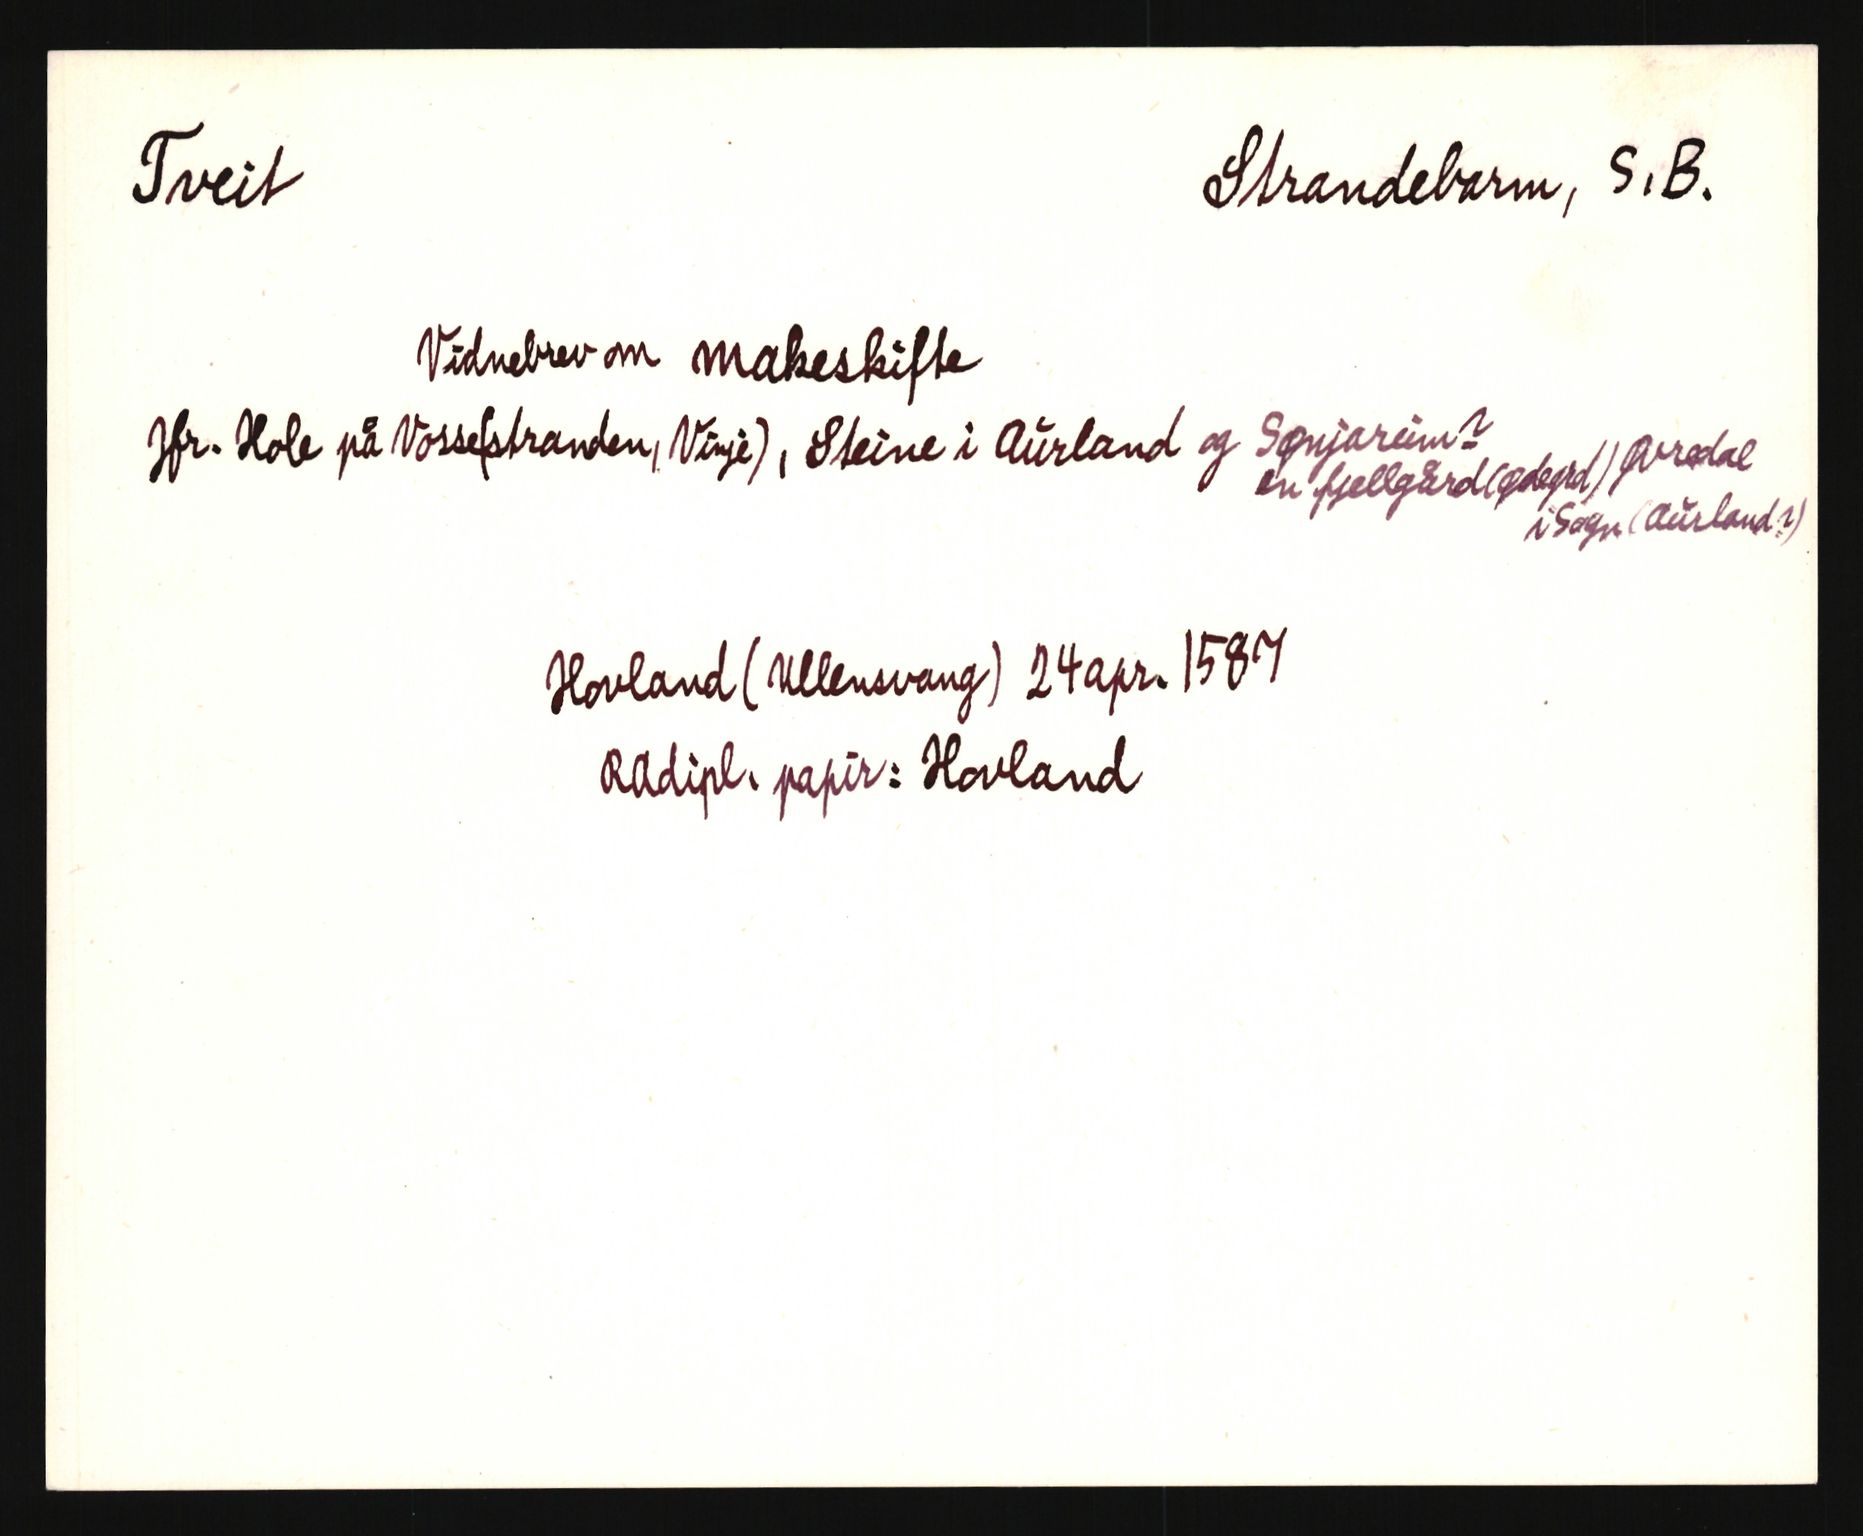 Tveit Strandebarm, S.B.
Vidnebrev om makeskifte
Jfr. Hole på Vosse(stranden, Vinje), Steine i Aurland og Sønjareim?
en fjellgård (ødegrd) Øvredal
i Sogn (Aurland?)
Hovland (Ullensvang) 24 apr. 1587
RAdipl. papir: Hovland